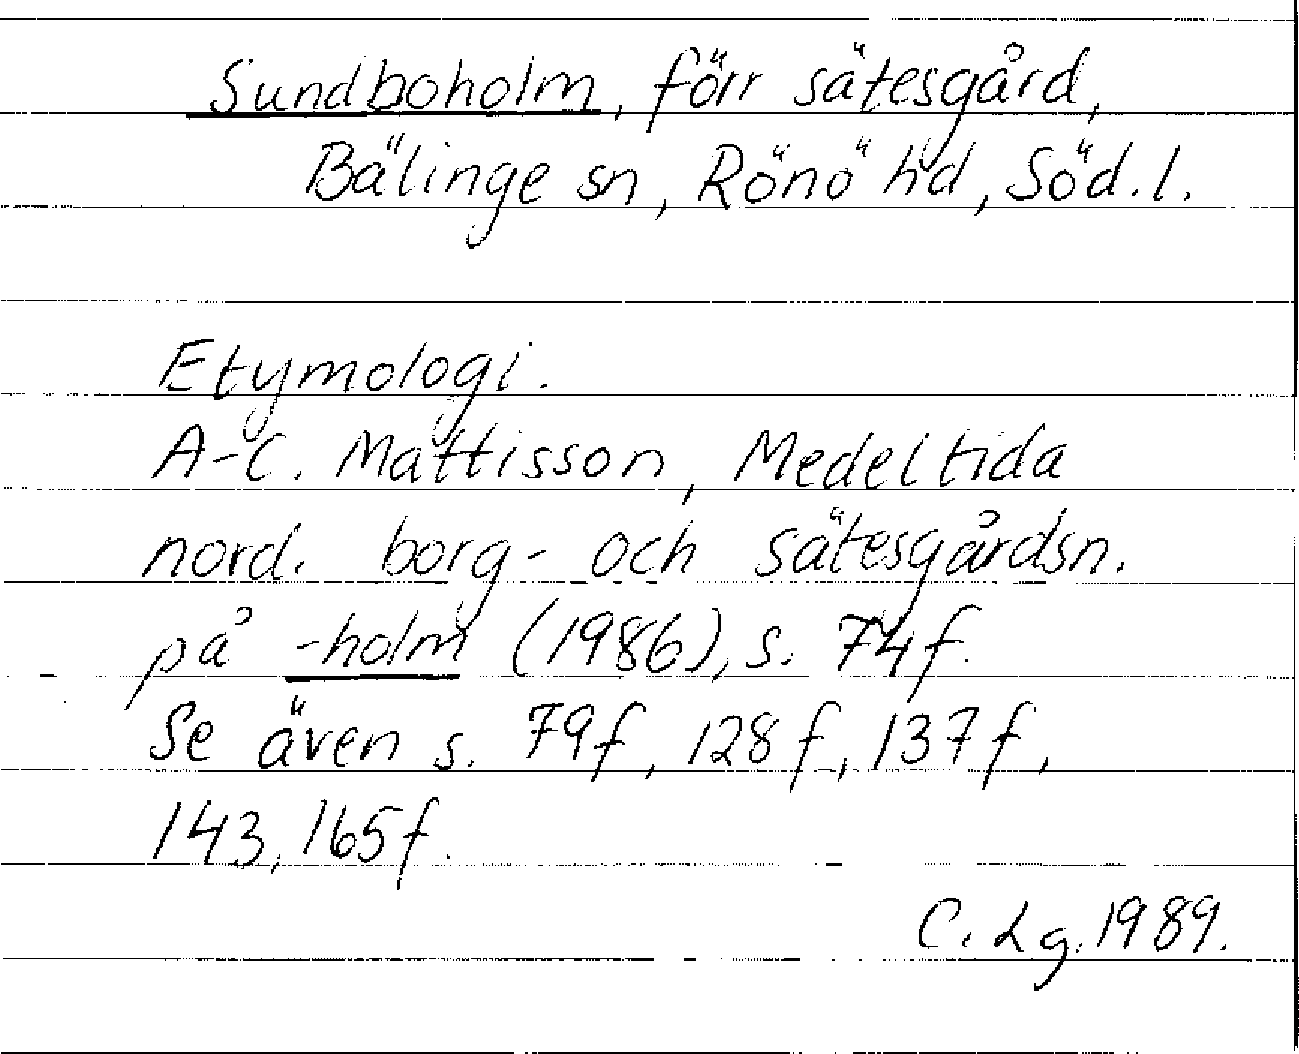 Sundboholm, förr sätesgård,
Bälinge sn, Rönö hd, Söd.l.
Etymologi.
A-C. Mattisson, Medeltida
nord. borg- och sätesgårdsn.
på -holm (1986), s. 74f.
Se även s. 79f, 128f, 137f,
143, 165f.
C. Lg. 1989.